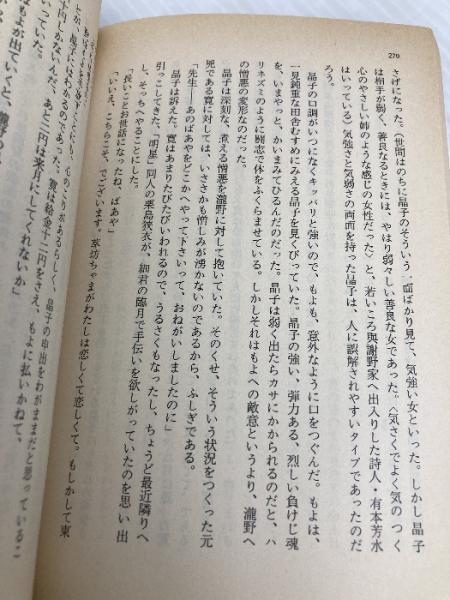 270
さげになった。（世間はのちに晶子のそういう一面ばかり見て、気強い女といった。しかし晶子
は相手が弱く、善良なるときには、やはり弱々しい善良な女であった。〈気さくでよく気のつく
心のやさしい姉のような感じの女性だった〉と、若いころ与謝野家へ出入りした詩人・有本芳水
はいっている）気強さと気弱さの両面を持った晶子は、人に誤解されやすいタイプであったのだ
ろう。
晶子の口調がいつになくキッパリと強いので、もよも、意外なように口をつぐんだ。もよは、
一見鈍重な田舎むすめにみえる晶子を見くびっていた。晶子の強い、弾力ある、烈しい負けじ魂
を、いまやっと、かいまみてひるんだのだった。晶子は弱く出たらカサにかかられるのだと、ハ
リネズミのように闘志で体をふくらませている。しかしそれはもよへの敵意というより、瀧野へ
の憎悪の変形なのだ。
晶子は深刻な、煮える憎悪を瀧野に対して抱いていた。そのくせ、そういう状況をつくった元
兇である寛に対しては、いささかも憎しみが湧かないのであるから、ふしぎである。
「先生――あのばあやをどこかへやって下さいって、おねがいしましたのに」
晶子は訴えた。寛はまたたびたびいわれるので、うるさくもなったし、ちょうど最近隣りへ
引っこしてきた、「明星」同人の栗島狭衣が、細君の臨月で手伝いを欲しがっていたのを思い出
し、そっちへやることにした。
「長いことお世話になったね、ばあや」
「いいえ、こちらこそ、でございます。萃坊ちゃまがわたしは恋しくて恋しくて。もしかして東
も、心のこりがあるらしく、晶子の申出をわがままだと思っているこ
とが、晶子にはわかるのであった。寛は給金十二円をさえ、もよに払いかねて、
十円しかないんだ、あと二円は来月にしてくれないか」
いっていた。
もよが出ていくと、瀧野の